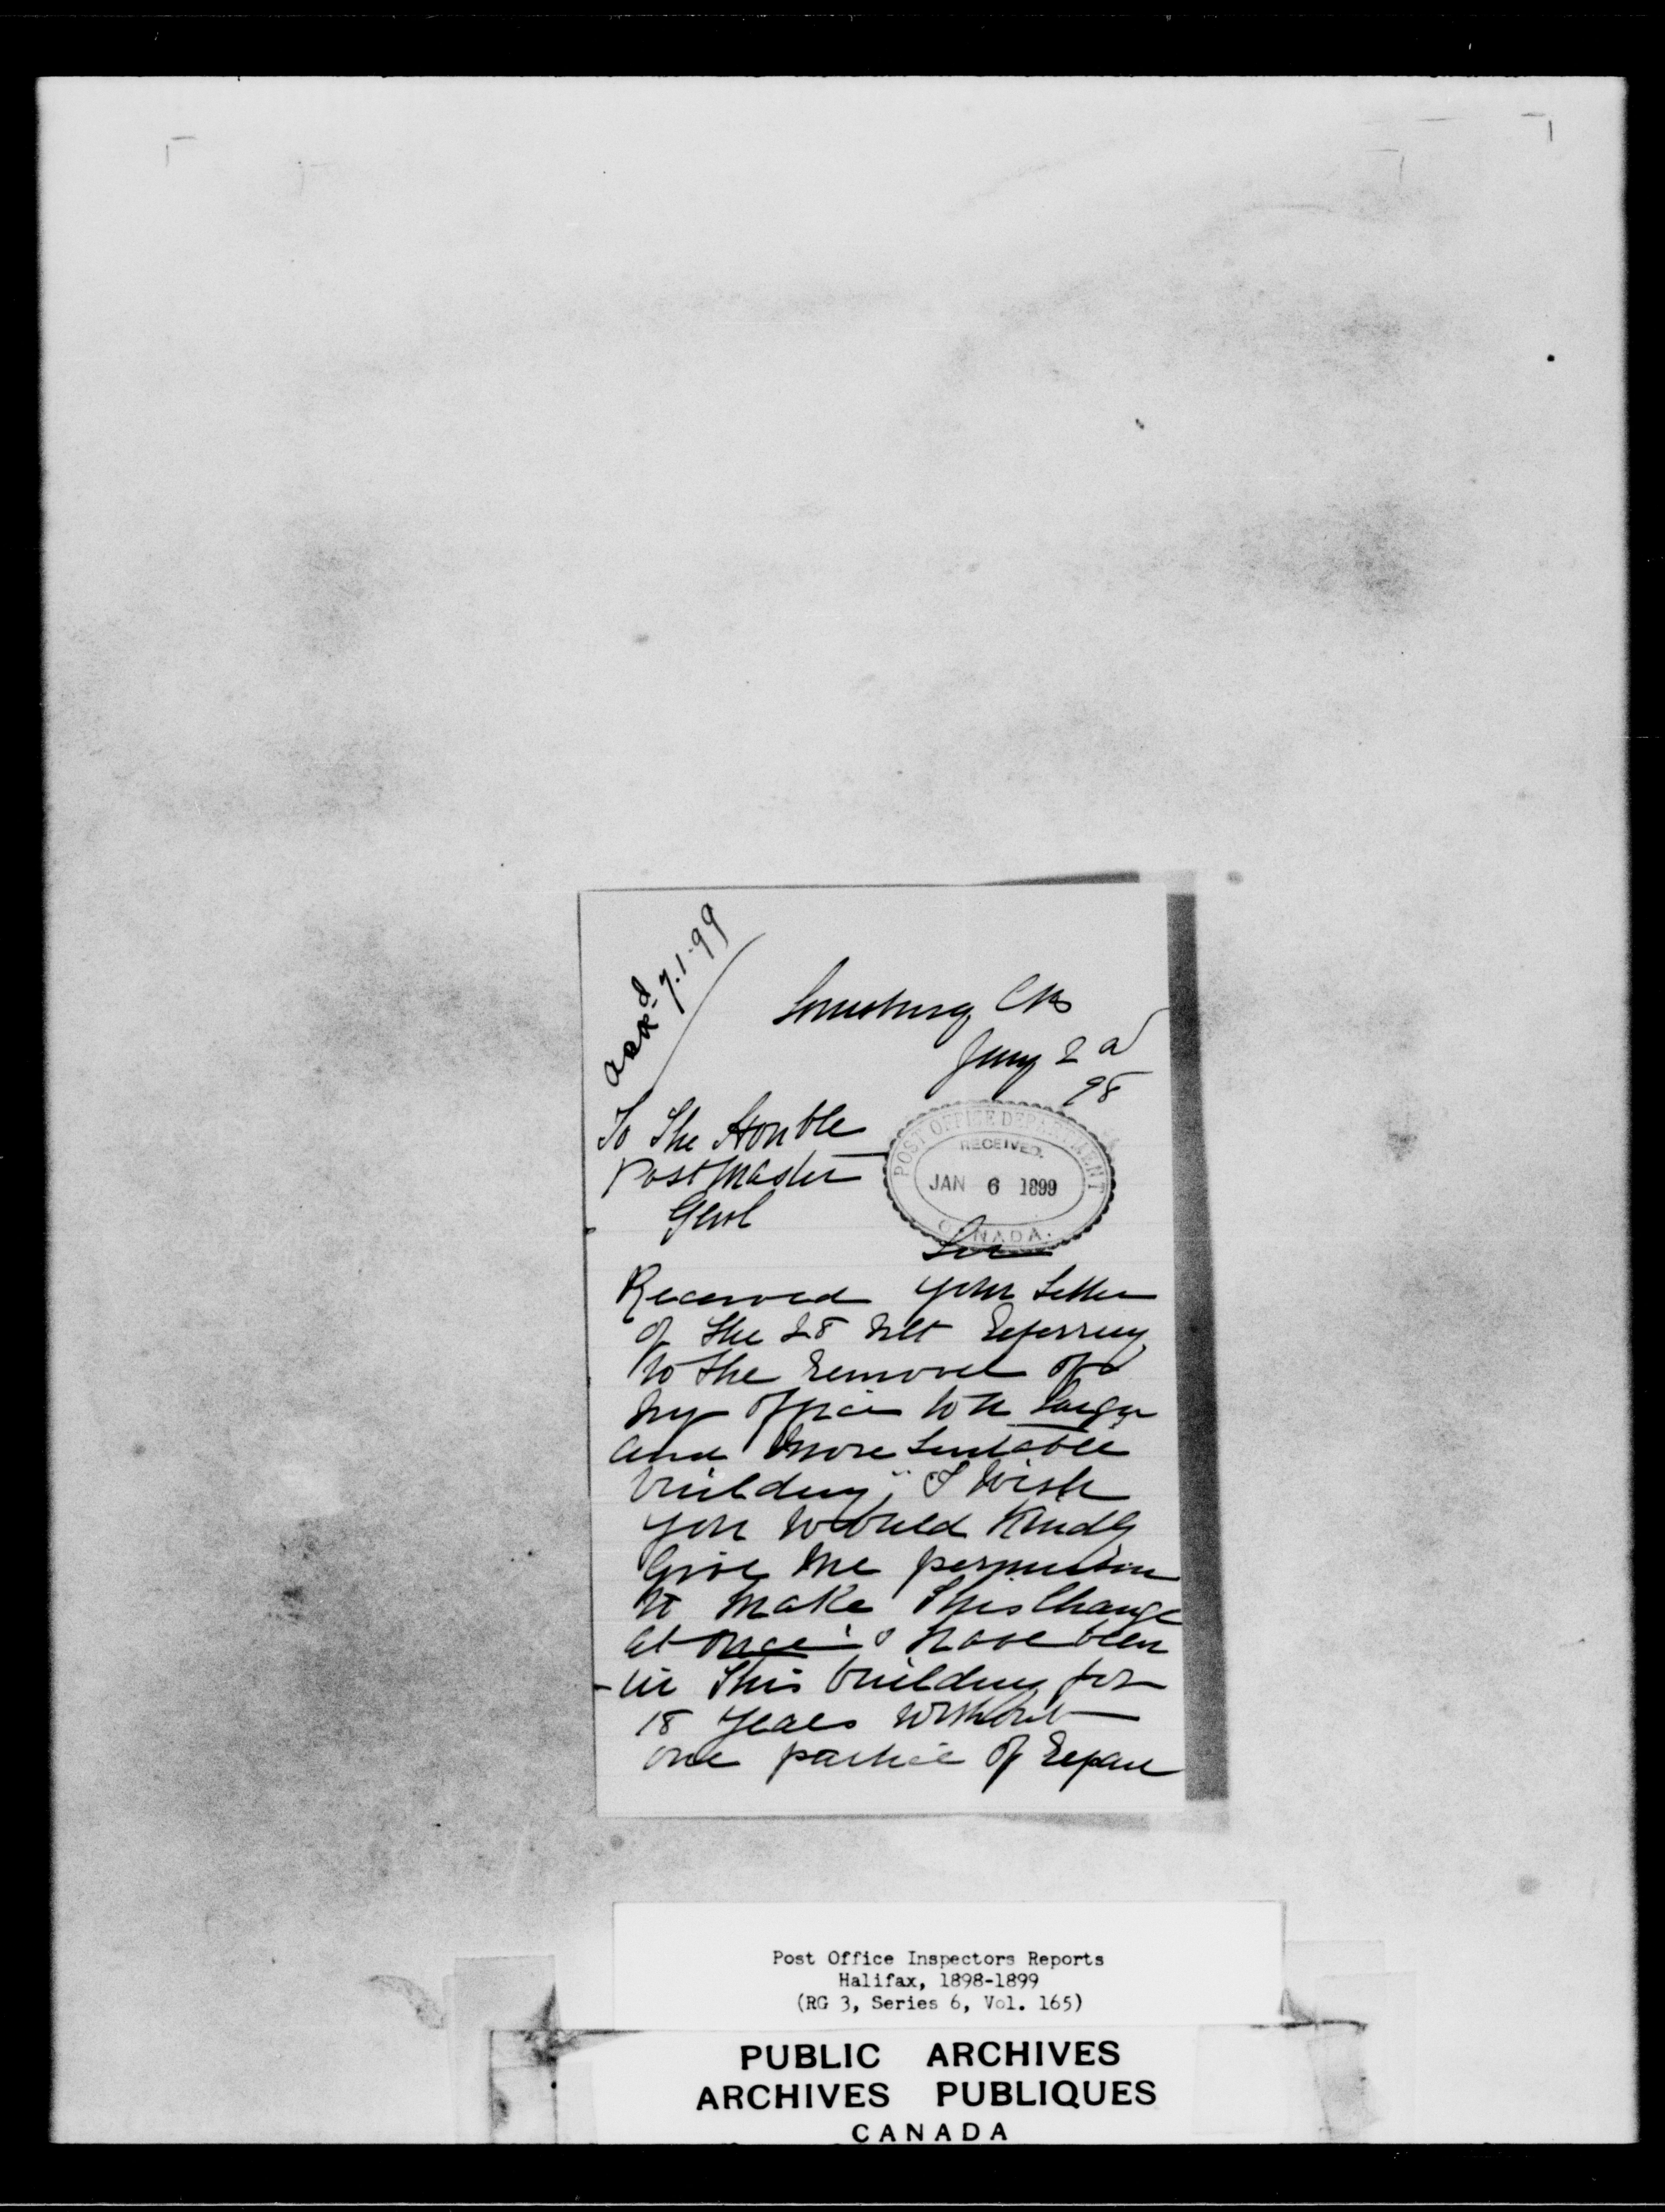 ackd 7.1.99
Louisburg CB
Jany 2d
98
To The Honble
Postmaster
Genl
POST OFFICE DEPARTMENT
RECEIVED.
JAN 6 1899
CANADA.
Sir
Received your Letter
of the 28 Ult Referring
to the removel of
my office to a larger
and more Suitable
building, I wish
you would Kindly
Give me permission
to make This Change
at once I have been
in This building for
18 years without
one particle of Repair
Post Office Inspectors Reports
Halifax, 1898-1899
(RG 3, Series 6, Vol. 165)
PUBLIC ARCHIVES
ARCHIVES PUBLIQUES
CANADA